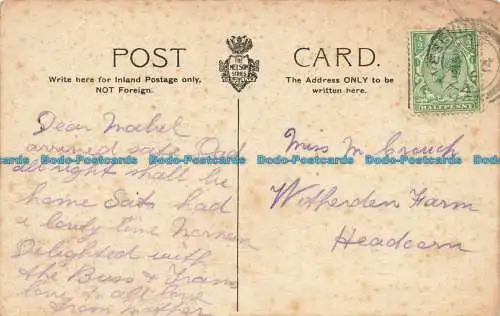 POST CARD.
THE
NELSON
SERIES
Write here for Inland Postage only,
NOT Foreign.
The Address ONLY to be
written here.
HALFPENNY
Dear Mabel
arrived safe Dad
all right shall be
home Sat had
a lovely time
Delighted with
the Buss & Trams
love to all
from Mother
Miss M Crouch
Witherden Farm
Headcorn
Dodo-Postcards Dodo-Postcards Dodo-Postcards Dodo-Postcards